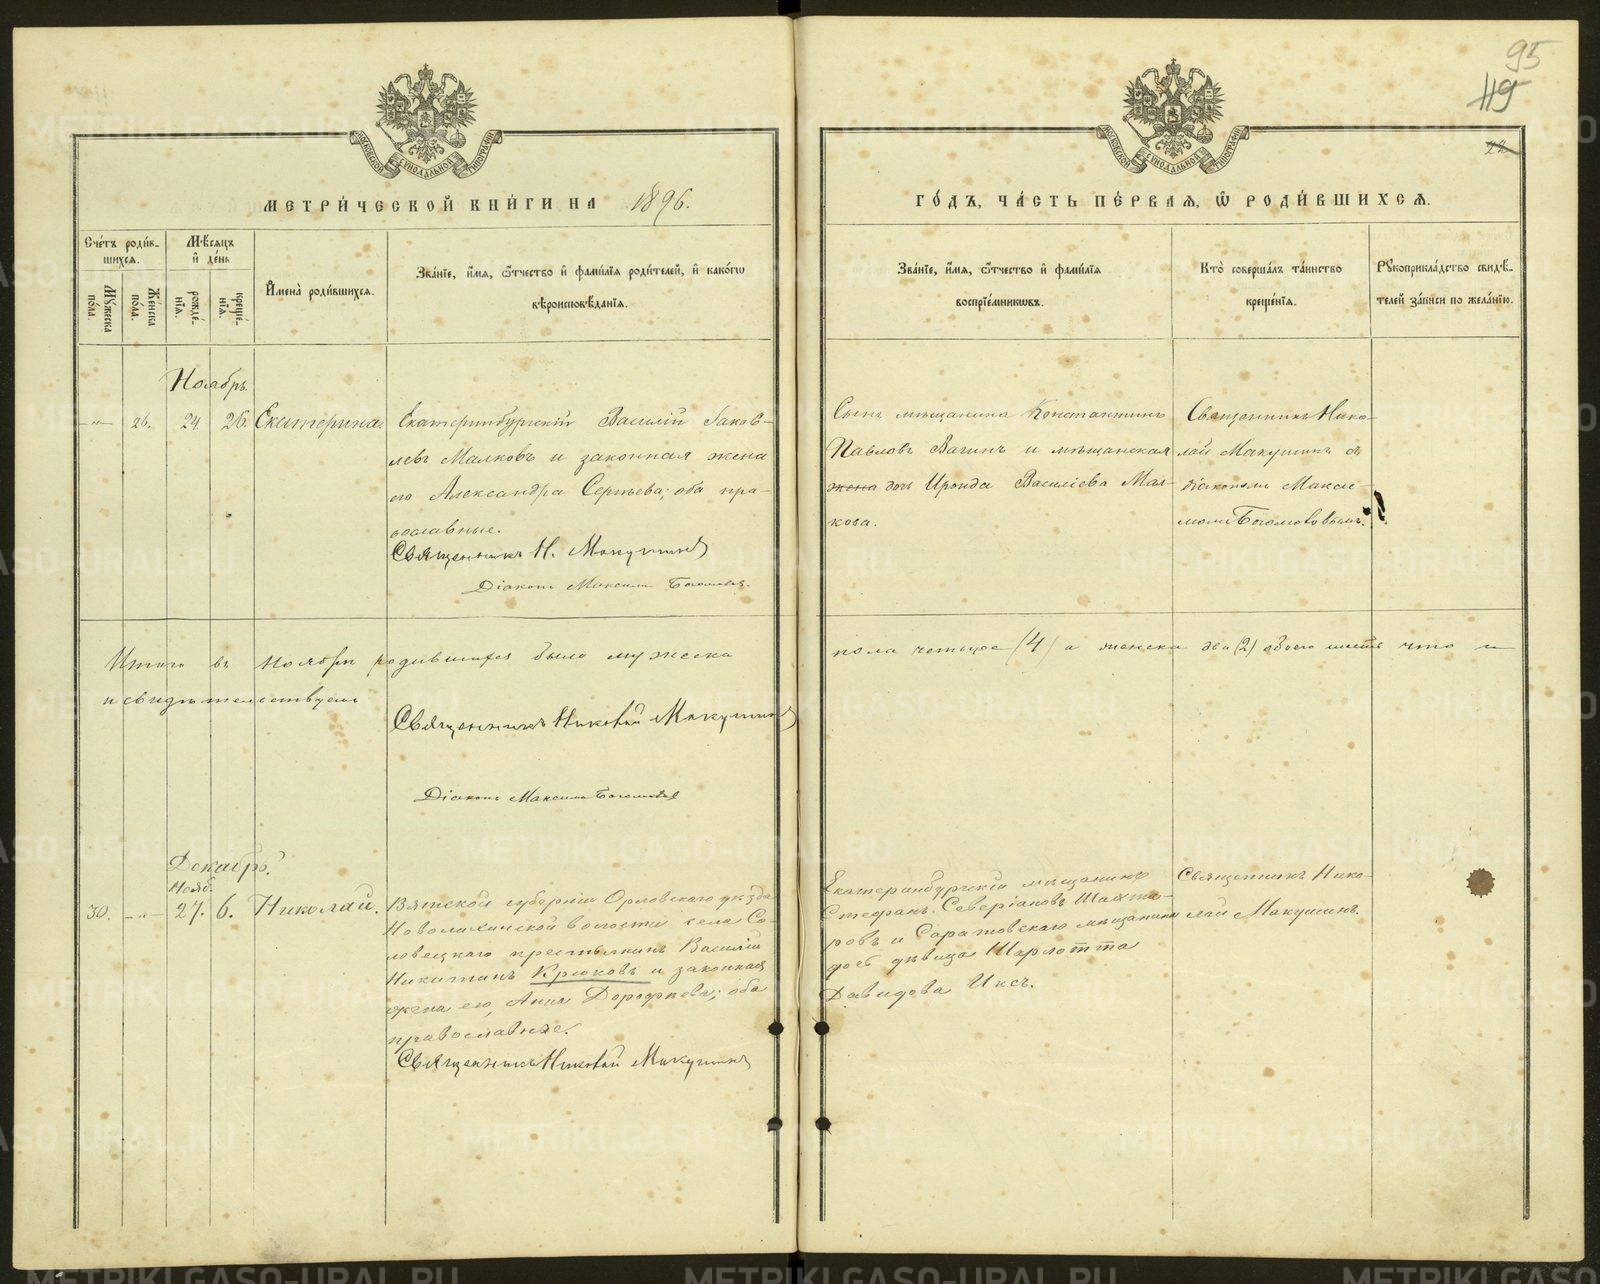 95
119
22
МЕТРИ́ЧЕСКОЙ КНИ́ГИ НА 1896.
ГО́ДЪ, ЧА́СТЬ ПЕ́РВАЯ, Ѿ РОДИ́ВШИХСЯ.
Сче́тъ роди́в-
шихся.
Му́жеска по́ла.
Же́нска по́ла.
Мѣ́сяцъ
и҆ де́нь
рожде́-
нїя.
креще́-
нїя.
И҆мена̀ роди́вшихся.
Зва́нїе, и҆́мя, ѻ҆́тчество и҆ фами́лїя роди́телей, и҆ како́гѡ
вѣроисповѣ́данїя.
Зва́нїе, и҆́мя, ѻ҆́тчество и҆ фами́лїя
воспрїе́мникѡвъ.
Кто̀ соверша́лъ та́инство
креще́нїя.
Рꙋкоприкла́дство свидѣ́-
телей за́писи по жела́нїю.
Ноябрь.
—„— 26. 24 26. Екатерина.
Екатеринбургскій Василій Іаков-
левъ Малковъ и законная жена
его Александра Сергѣева; оба пра-
вославные.
Священникъ Н. Макушинъ
Діаконъ Максимъ Богомоловъ.
Сынъ мѣщанина Константинъ
Павловъ Вагинъ и мѣщанская
жена дочь Ироида Василіева Мал-
кова.
Священникъ Нико-
лай Макушинъ съ
діакономъ Макси-
момъ Богомоловымъ.
Итого въ ноябрѣ родившихся было мужеска пола четыре (4) а женска два (2) обоего шесть что и
и свидѣтельствуемъ
Священникъ Николай Макушинъ
Діаконъ Максимъ Богомоловъ
Декабрь.
Нояб.
30. —„— 27. 6. Николай.
Вятской губерніи Орловскаго уѣзда
волости села Со-
ловецкаго крестьянинъ Василій
Никитинъ Крюковъ и законная
жена его, Анна Дорофеева; оба
православные.
Священникъ Николай Макушинъ
Екатеринбургскій мѣщанинъ
Стефанъ Северіановъ Шахма-
ровъ и Саратовскаго мѣщанина
дочь дѣвица Шарлотта
Давидова Иксъ.
Священникъ Нико-
лай Макушинъ.
METRIKI.GASO-URAL.RU